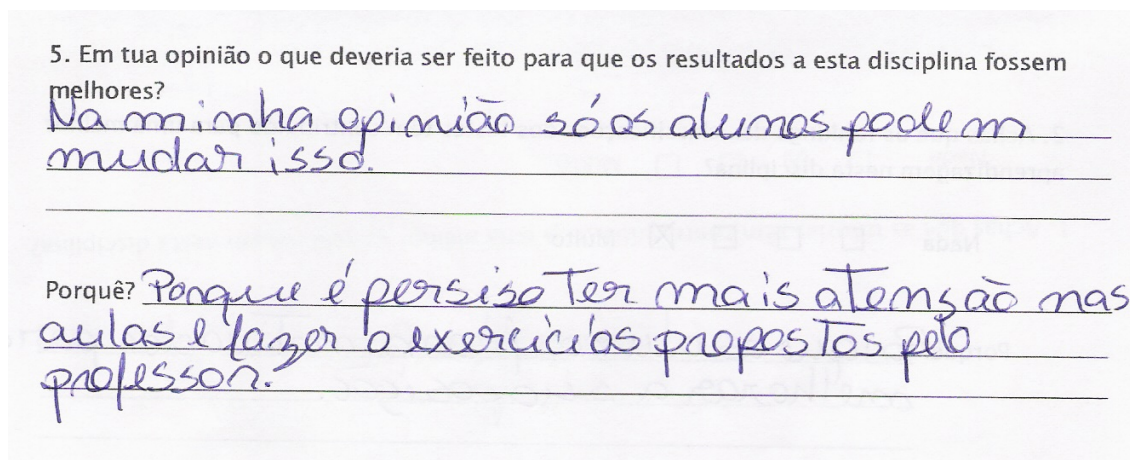 5. Em tua opinião o que deveria ser feito para que os resultados a esta disciplina fossem
melhores?
Na minha opinião só os alunos podem
mudar isso.
Porquê? Porque é persiso Ter mais atensão nas
aulas e fazer o exercicios propostos pelo
professor.